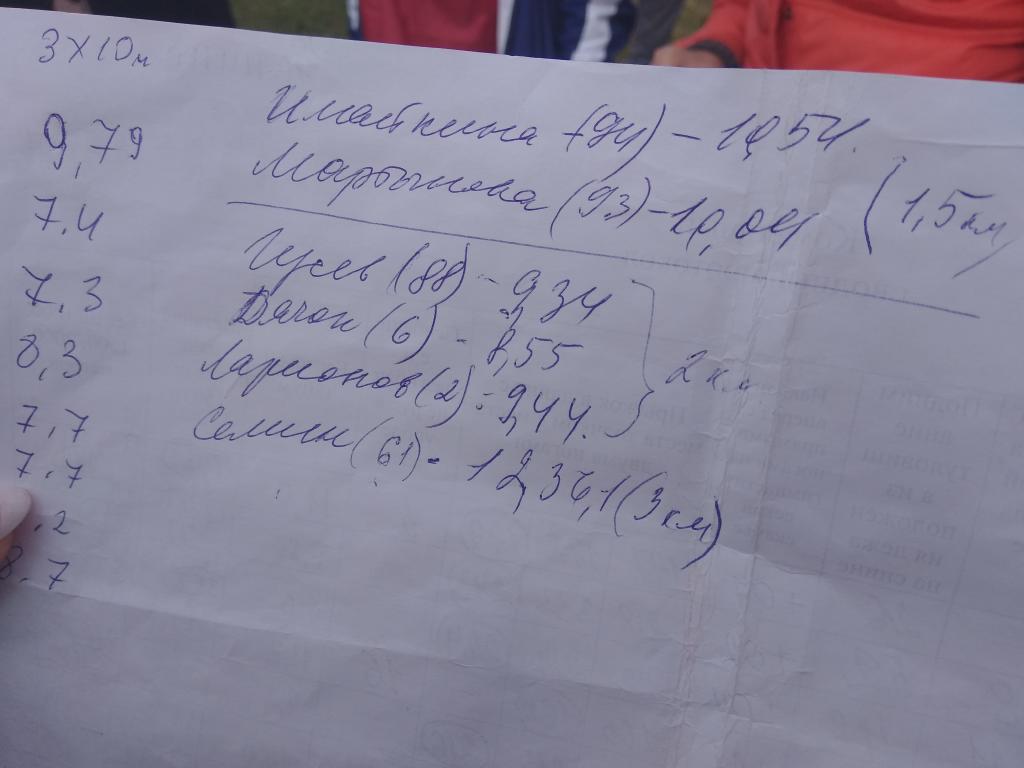 3х10м
9,79
7.4
7.3
8,3
7,7
7.7
.2
8.7
(94) - 10,54.
Мартынова (93) - 10,04 (1,5км)
Гусев (88) - 9,34
Дячок (6) - 8,55
2 км
Ларионов (2) - 9,44.
Семин (61) - 12,36,1 (3 км)